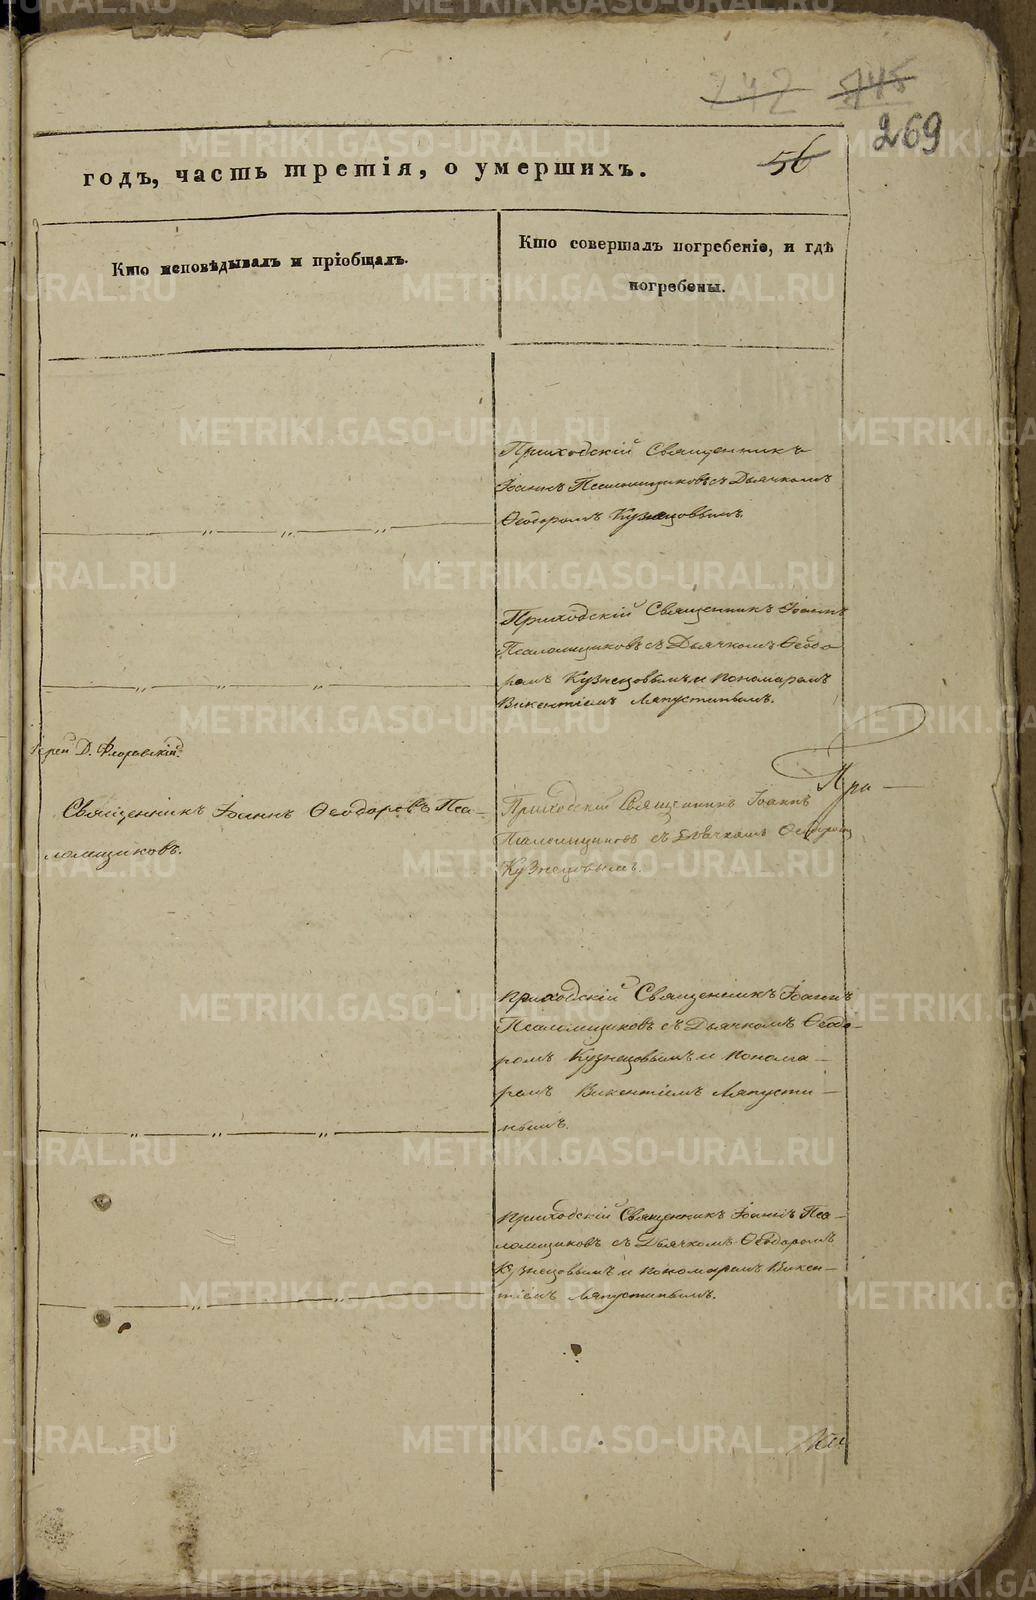 242 545
269
годъ, часть третія, о умершихъ.
56
Кто исповѣдывалъ и пріобщалъ.
Кто совершалъ погребеніе, и гдѣ
погребены.
Приходскій Священникъ
Іоаннъ Псаломщиковъ съ Дьячкомъ
Ѳеодоромъ Кузнецовымъ.
Приходскій Священникъ Іоаннъ
Псаломщиковъ съ Дьячкомъ Ѳеодо
ромъ Кузнецовымъ и пономаремъ
Викентіемъ Ляпустинымъ.
Іерей Д. Флоровскій.
При—
Священникъ Іоаннъ Ѳеодоровъ Пса-
ломщиковъ.
Приходскій Священникъ Іоаннъ
Псаломщиковъ съ Дьячкомъ Ѳеодоромъ
Кузнецовымъ.
Приходскій Священникъ Іоаннъ
Псаломщиковъ съ Дьячкомъ Ѳеодо-
ромъ Кузнецовымъ и Понома-
ремъ Викентіемъ Ляпусти-
нымъ.
Приходскій Священникъ Іоаннъ Пса-
ломщиковъ съ Дьячкомъ Ѳеодоромъ
Кузнецовымъ и пономаремъ Викен-
тіемъ Ляпустинымъ.
METRIKI.GASO-URAL.RU